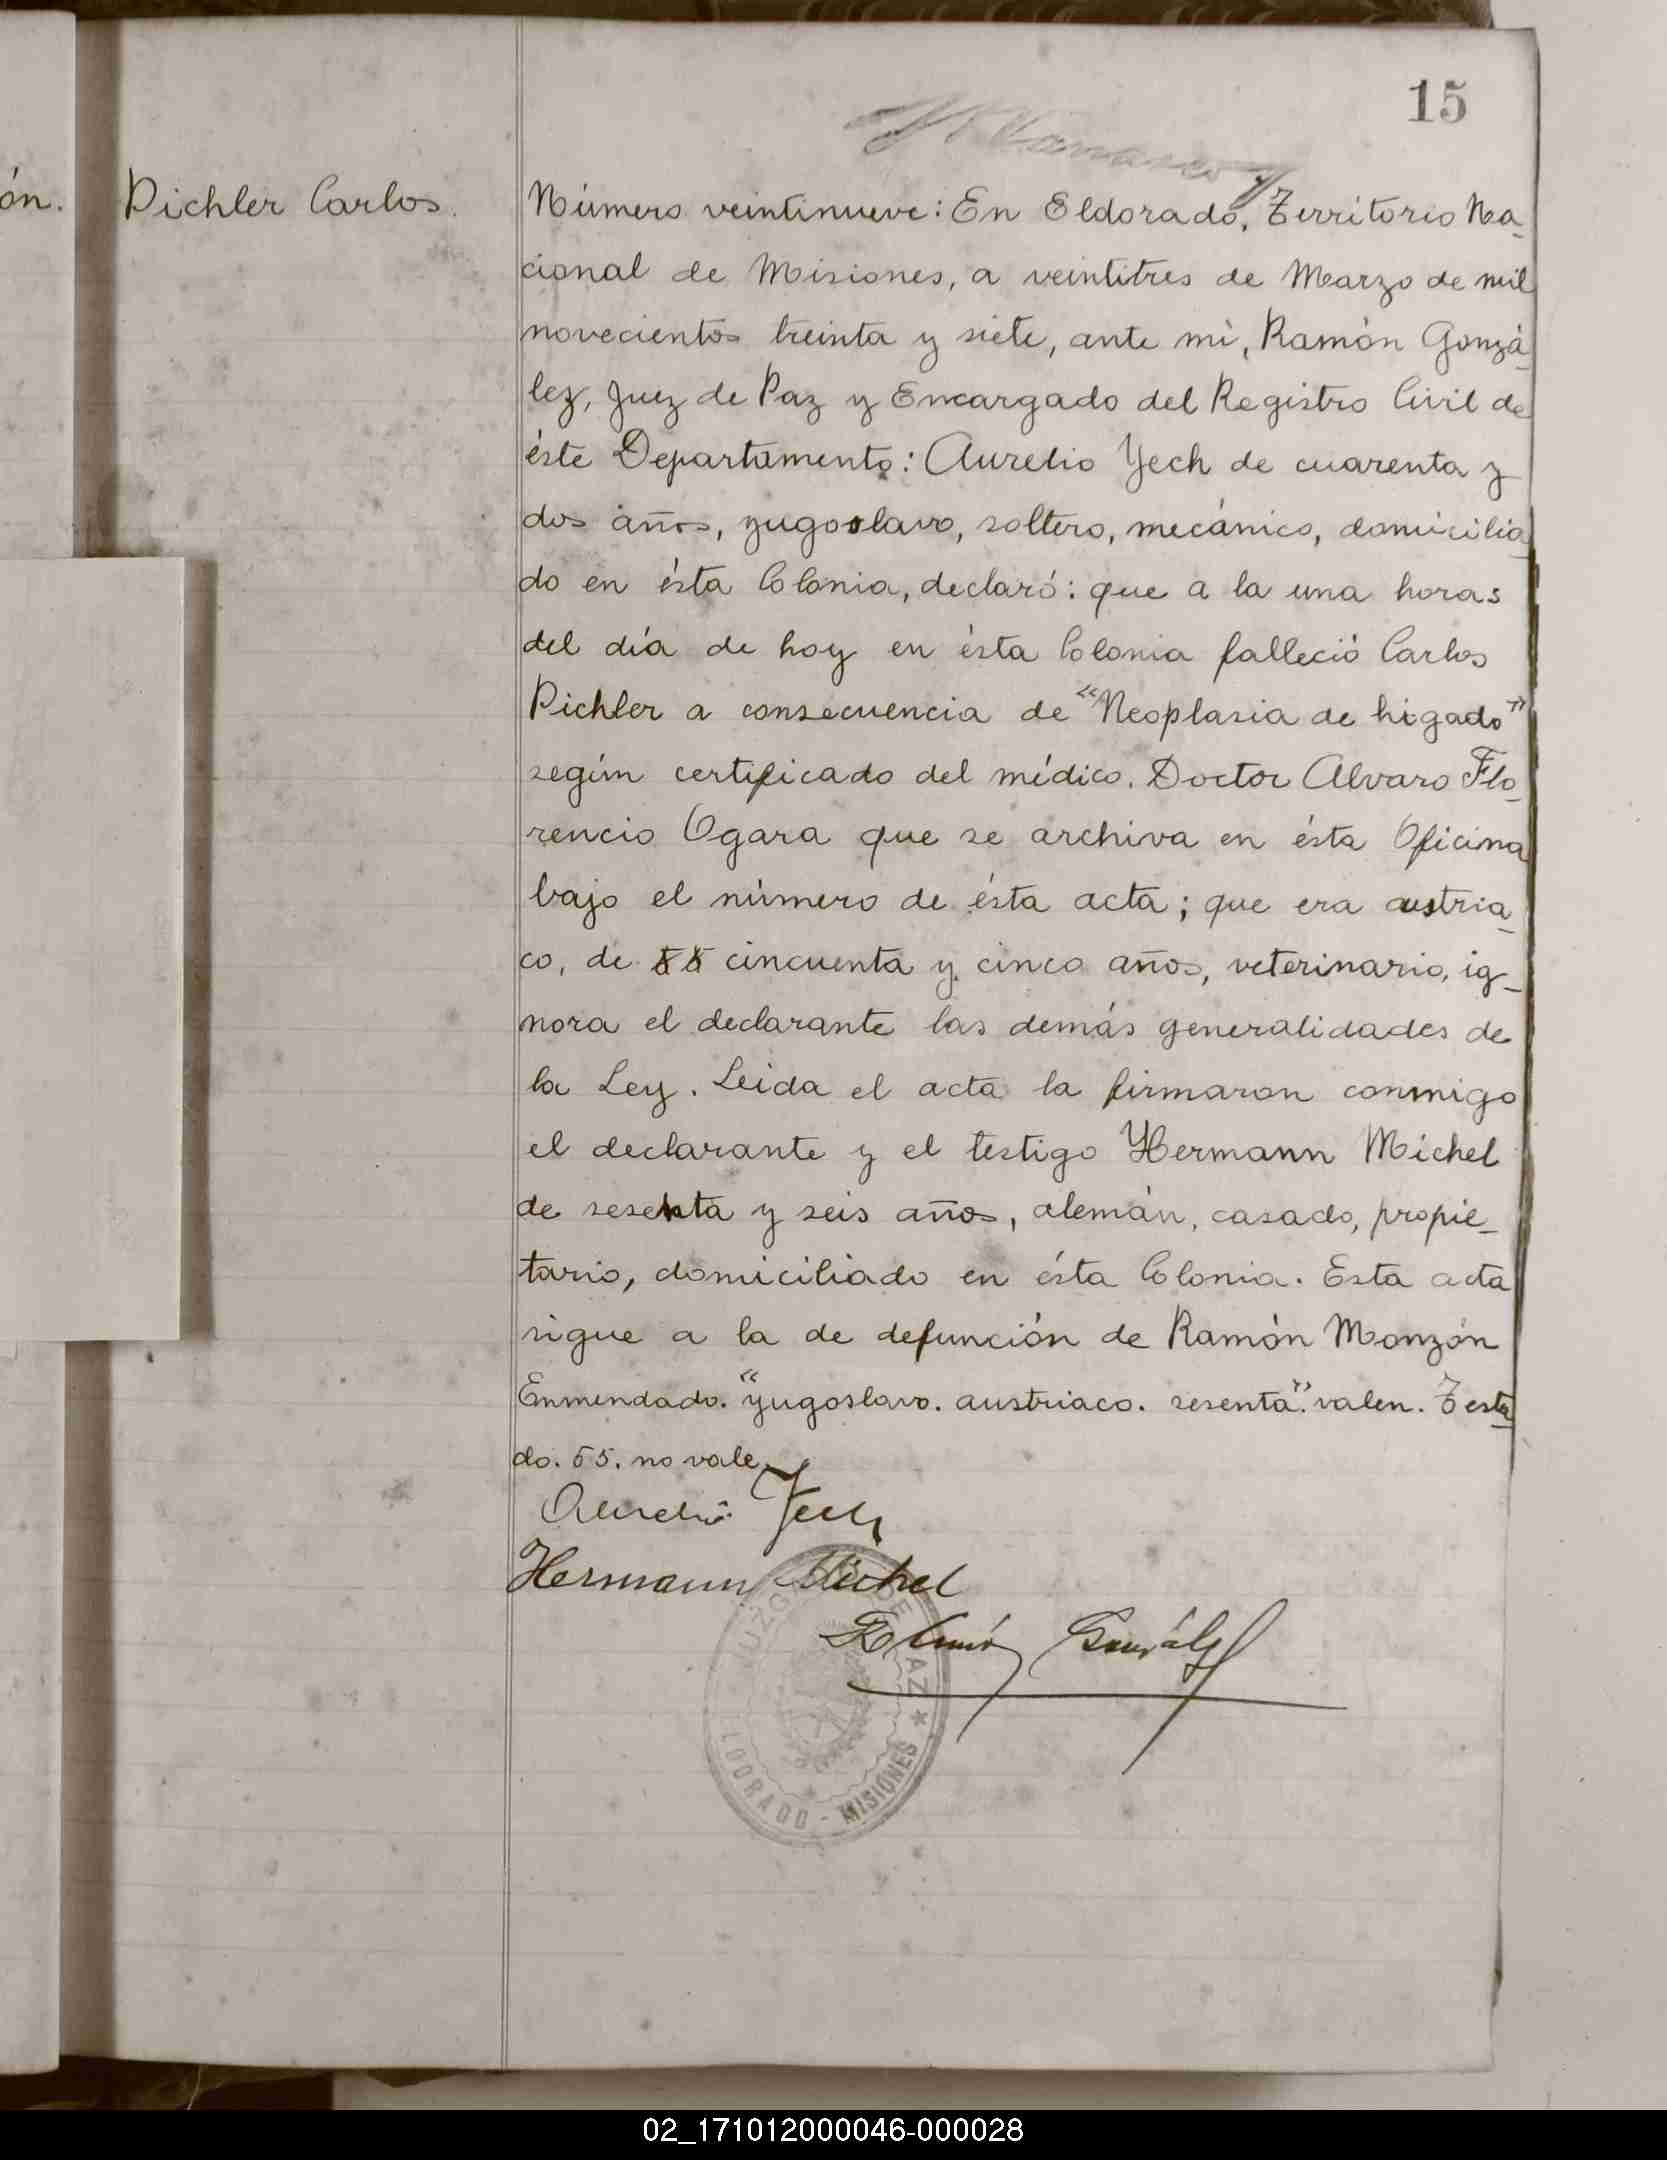 15
ón.
Pichler Carlos.
Número veintinueve: En Eldorado, Territorio Na-
cional de Misiones, a veintitres de Marzo de mil
novecientos treinta y siete, ante mí, Ramón Gonzá-
lez, Juez de Paz y Encargado del Registro Civil de
éste Departamento: Aurelio Yech de cuarenta y
dos años, yugoslavo, soltero, mecánico, domicilia-
do en ésta Colonia, declaró: que a la una horas
del día de hoy en ésta Colonia falleció Carlos
Pichler a consecuencia de "Neoplasia de higado"
según certificado del médico. Doctor Alvaro Flo-
rencio Ogara que se archiva en ésta Oficina
bajo el número de ésta acta; que era austria-
co, de 55 cincuenta y cinco años, veterinario, ig-
nora el declarante las demás generalidades de
la Ley. Leida el acta la firmaron conmigo
el declarante y el testigo Hermann Michel
de sesenta y seis años, alemán, casado, propie-
tario, domiciliado en ésta Colonia. Esta acta
sigue a la de defunción de Ramón Monzón
Enmendado. "yugoslavo. austriaco. sesenta". valen. Testa-
do. 55. no vale.
Aurelio Yech
Hermann Michel
Ramón González
JUZGADO DE PAZ ★
ELDORADO - MISIONES
02_171012000046-000028